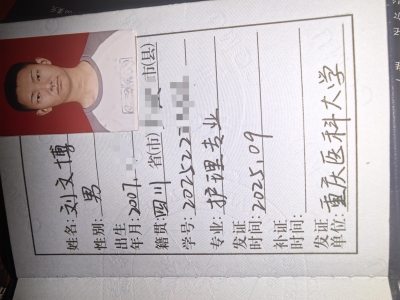 姓名: 刘文博
性别: 男
出生年月: 2007.
籍贯: 四川 省(市) 市(县)
学号: 2025222
专业: 护理专业
发证时间: 2025.09
补证时间:
发证单位: 重庆医科大学